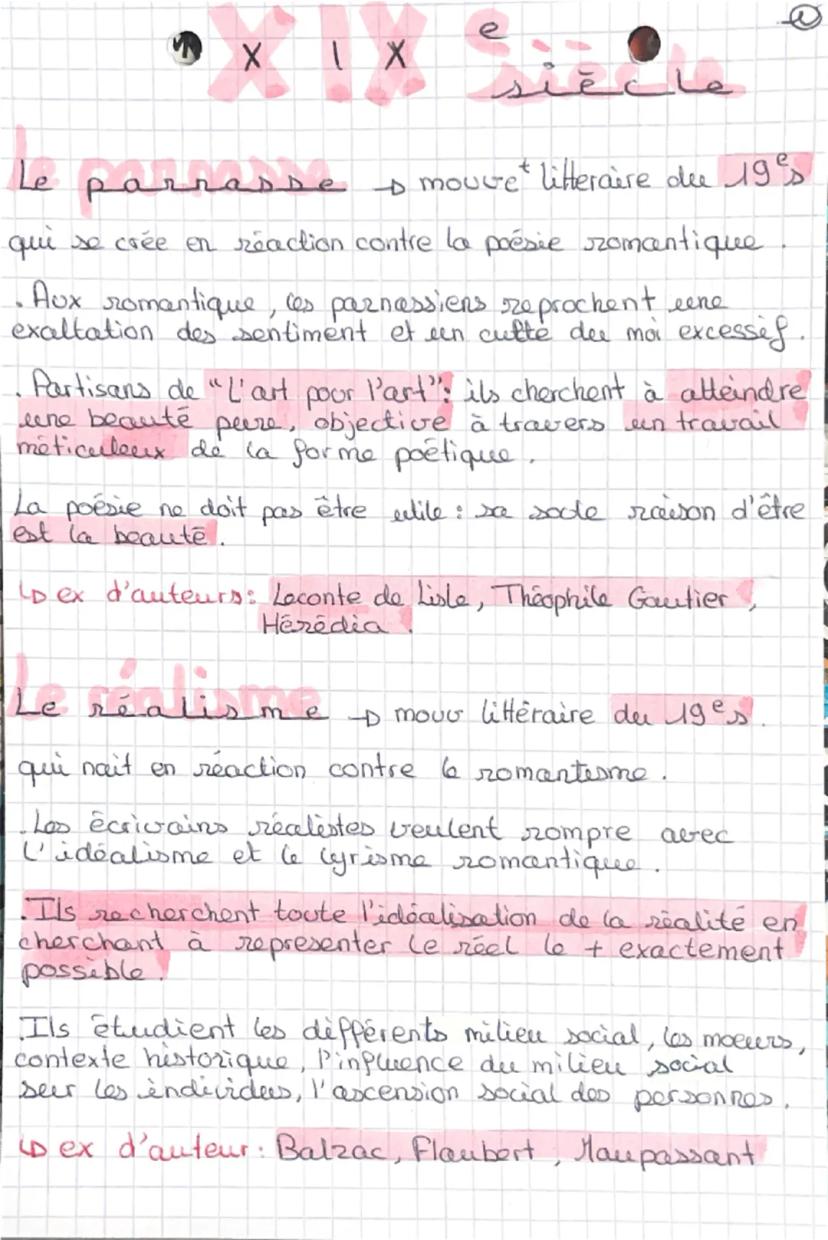 ①
XIXe siècle
Le parnasse → mouvet litteraire du 19e s
qui se crée en réaction contre la poésie romantique.
. Aux romantique, les parnassiens reprochent une
exaltation des sentiment et un culte du moi excessif.
. Partisans de "L'art pour l'art": ils cherchent à atteindre
une beauté pure, objective à travers un travail
méticuleux de la forme poétique.
La poésie ne doit pas être utile : sa seule raison d'être
est la beauté.
↳ ex d'auteurs: Leconte de Lisle, Théophile Gautier,
Hérédia.
Le réalisme → mouv littéraire du 19e s.
qui nait en réaction contre le romantisme.
. Les écrivains réalistes veulent rompre avec
l'idéalisme et le lyrisme romantique.
. Ils recherchent toute l'idéalisation de la réalité en
cherchant à representer le réel le + exactement
possible.
. Ils étudient les différents milieu social, les moeurs,
contexte historique, l'influence du milieu social
sur les individus, l'ascension social des personnes.
↳ ex d'auteur: Balzac, Flaubert, Maupassant